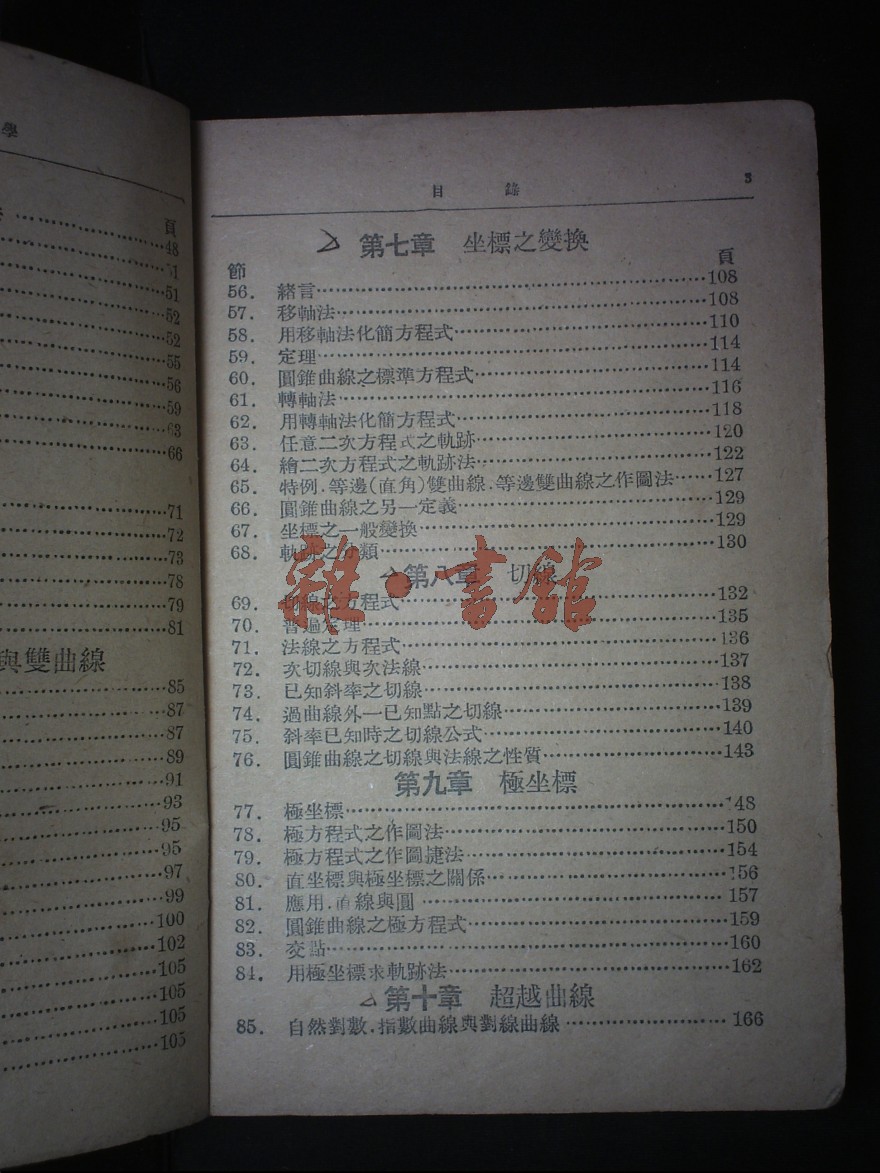 學
頁
48
51
51
52
52
55
56
59
63
66
71
72
73
78
79
81
與雙曲線
85
87
87
89
91
93
95
95
97
99
100
102
105
105
105
105
目 錄 3
第七章 坐標之變換
節 頁
56. 緒言 108
57. 移軸法 108
58. 用移軸法化簡方程式 110
59. 定理 114
60. 圓錐曲線之標準方程式 114
61. 轉軸法 116
62. 用轉軸法化簡方程式 118
63. 任意二次方程式之軌跡 120
64. 繪二次方程式之軌跡法 122
65. 特例.等邊(直角)雙曲線.等邊雙曲線之作圖法 127
66. 圓錐曲線之另一定義 129
67. 坐標之一般變換 129
68. 軌跡之分類 130
第八章 切線
69. 切線之方程式 132
70. 普遍定理 135
71. 法線之方程式 136
72. 次切線與次法線 137
73. 已知斜率之切線 138
74. 過曲線外一已知點之切線 139
75. 斜率已知時之切線公式 140
76. 圓錐曲線之切線與法線之性質 143
第九章 極坐標
77. 極坐標 148
78. 極方程式之作圖法 150
79. 極方程式之作圖捷法 154
80. 直坐標與極坐標之關係 156
81. 應用.直線與圓 157
82. 圓錐曲線之極方程式 159
83. 交點 160
84. 用極坐標求軌跡法 162
第十章 超越曲線
85. 自然對數.指數曲線與對線曲線 166
雜·書館